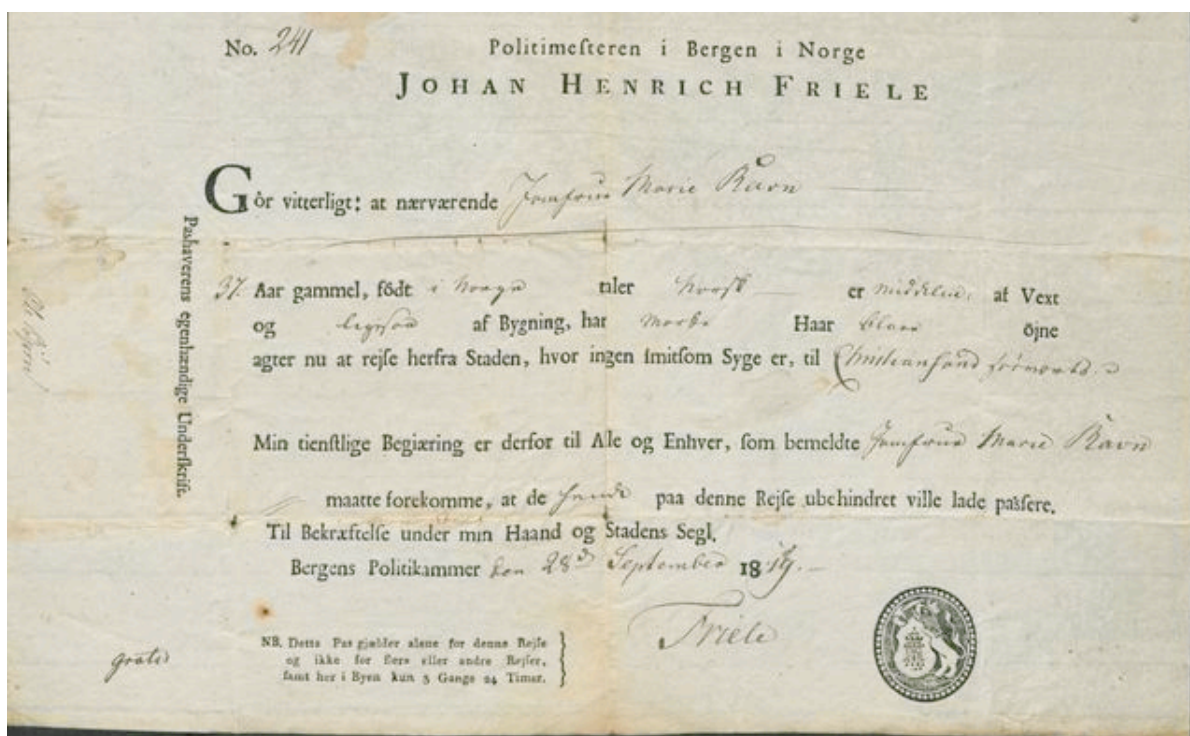 No. 241
Politimeſteren i Bergen i Norge
JOHAN HENRICH FRIELE
Gör vitterligt: at nærværende Jomfrue Marie Ravn
37. Aar gammel, födt i Norge taler Norsk er middels af Vext
og af Bygning, har mørke Haar blaae öjne
agter nu at rejſe herfra Staden, hvor ingen ſmitſom Syge er, til Christiansand
Min tienſtlige Begiæring er derfor til Alle og Enhver, ſom bemeldte Jomfrue Marie Ravn
maatte forekomme, at de hende paa denne Rejſe ubehindret ville lade paſſere.
Til Bekræftelſe under min Haand og Stadens Segl.
Bergens Politikammer den 28de September 18
Friele
NB. Dette Pas gjælder alene for denne Rejſe
og ikke for flere eller andre Rejſer,
ſamt her i Byen kun 3 Gange 24 Timer.
gratis
Pashaverens egenhændige Underſkrift.